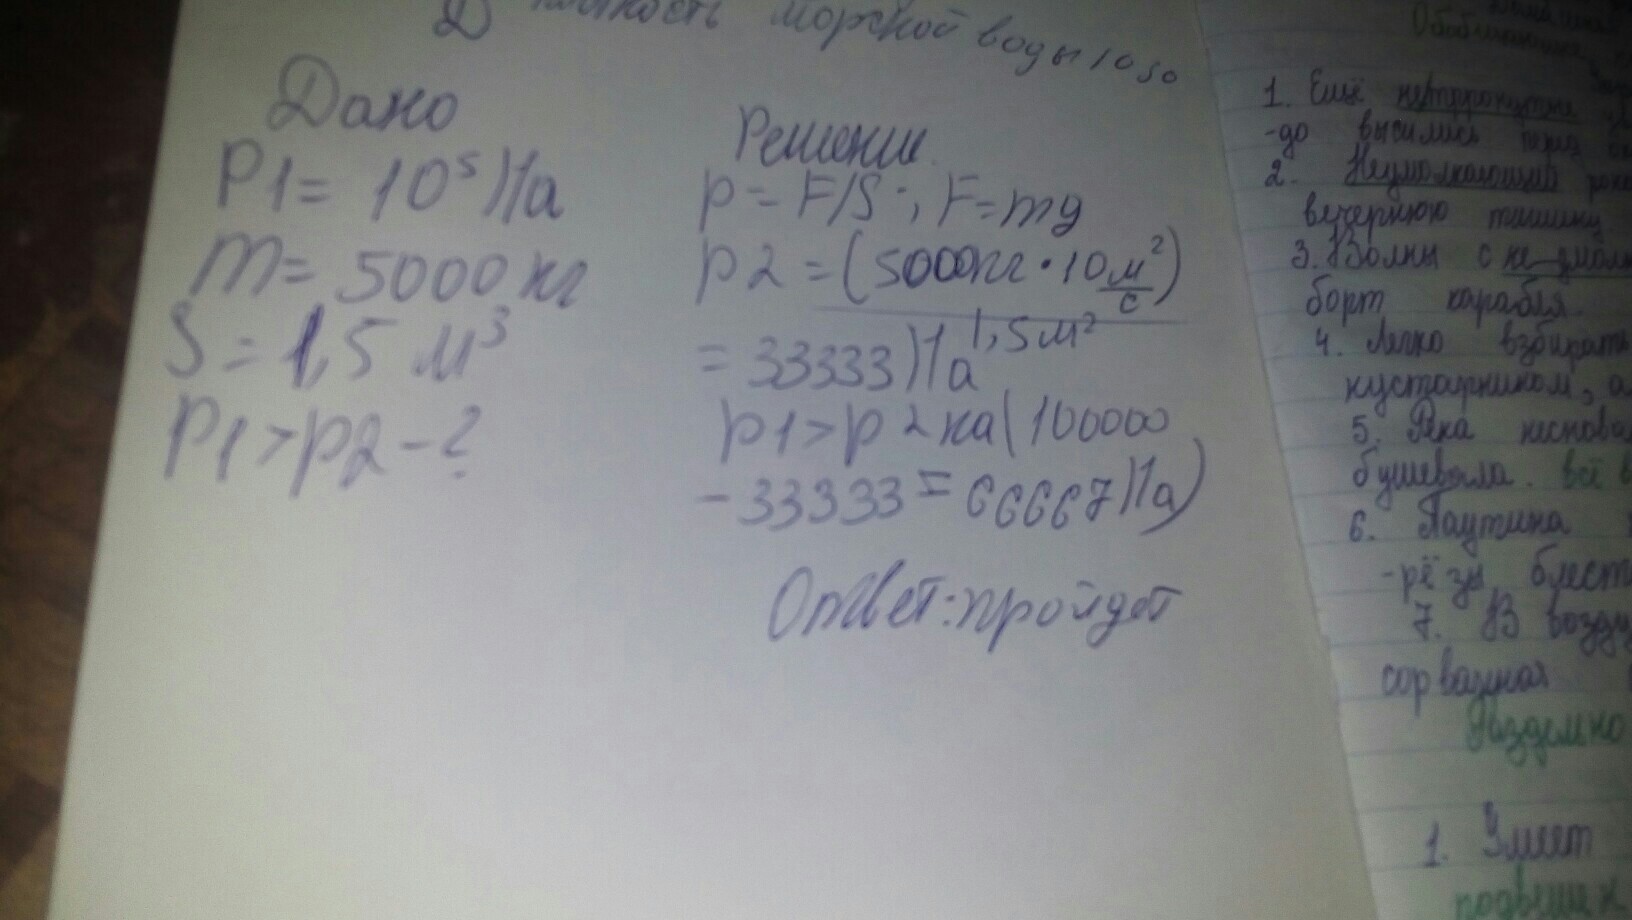 морской воды 1050
Дано
P1 = 10⁵ Па
m = 5000 кг
S = 1,5 м³
P1 > p2 - ?
Решение
p = F/S ; F = mg
p2 = (5000кг · 10 м²/с)
1,5 м²
= 33333 Па
p1 > p2 на (100000
- 33333 = 66667 Па)
Ответ: пройдет
1. Ещё
-до высились
2. Неумолкающий
вечернюю тишину
3. Волны с
борт карабля.
4. Легко взбирать
кустарником,
5. Река
бушевала. всё в
6. Паутина
блест
7. В возду
сорванная
1. Умеет